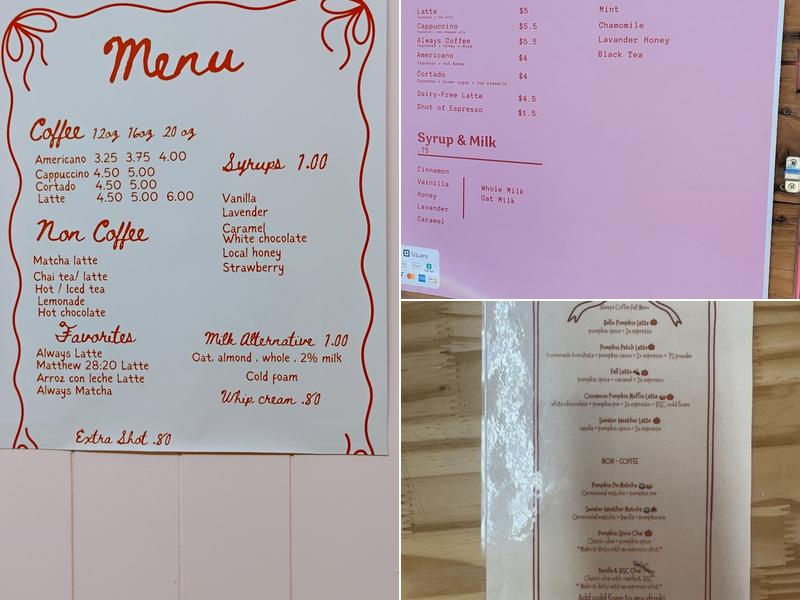 Menu
Coffee 12oz 16oz 20 oz
Americano 3.25 3.75 4.00
Cappuccino 4.50 5.00
Cortado 4.50 5.00
Latte 4.50 5.00 6.00
Non Coffee
Matcha latte
Chai tea/ latte
Hot / Iced tea
Lemonade
Hot chocolate
Favorites
Always Latte
Matthew 28:20 Latte
Arroz con leche Latte
Always Matcha
Syrups 1.00
Vanilla
Lavender
Caramel
White chocolate
Local honey
Strawberry
Milk Alternative 1.00
Oat. almond . whole . 2% milk
Cold foam
Whip cream .80
Extra Shot .80
Latte $5
Cappuccino $5.5
Always Coffee $5.5
Espresso + honey + Rose
Americano $4
Espresso + hot Water
Cortado $4
Espresso + brown sugar + 2oz steamed
Dairy-Free Latte $4.5
Shot of Espresso $1.5
Mint
Chamomile
Lavander Honey
Black Tea
Syrup & Milk
.75
Cinnamon
Vainilla
Honey
Lavander
Caramel
Whole Milk
Oat Milk
Square
Always Coffee Fall Menu
pumpkin spice + 2x espresso
Pumpkin Patch Latte
homemade horchata + pumpkin sauce + 2x espresso + PS powder
Fall Latte
pumpkin spice + caramel + 2x espresso
Cinnamon Pumpkin Muffin Latte
white chocolate + pumpkin pie + 2x espresso + BSC cold foam
Sweater Weather Latte
vanilla + pumpkin spice + 2x espresso
NON - COFFEE
Pumpkin Pie Matcha
Ceremonial matcha + pumpkin pie
Sweater Weather Matcha
Ceremonial matcha + Vanilla + pumpkin pie
Pumpkin Spice Chai
Classic chai + pumpkin spice
*Make it dirty with an espresso shot*
Vanilla & BSC Chai
Classic chai with vanilla & BSC
*Make it dirty with an espresso shot*
Add cold foam to any drink!